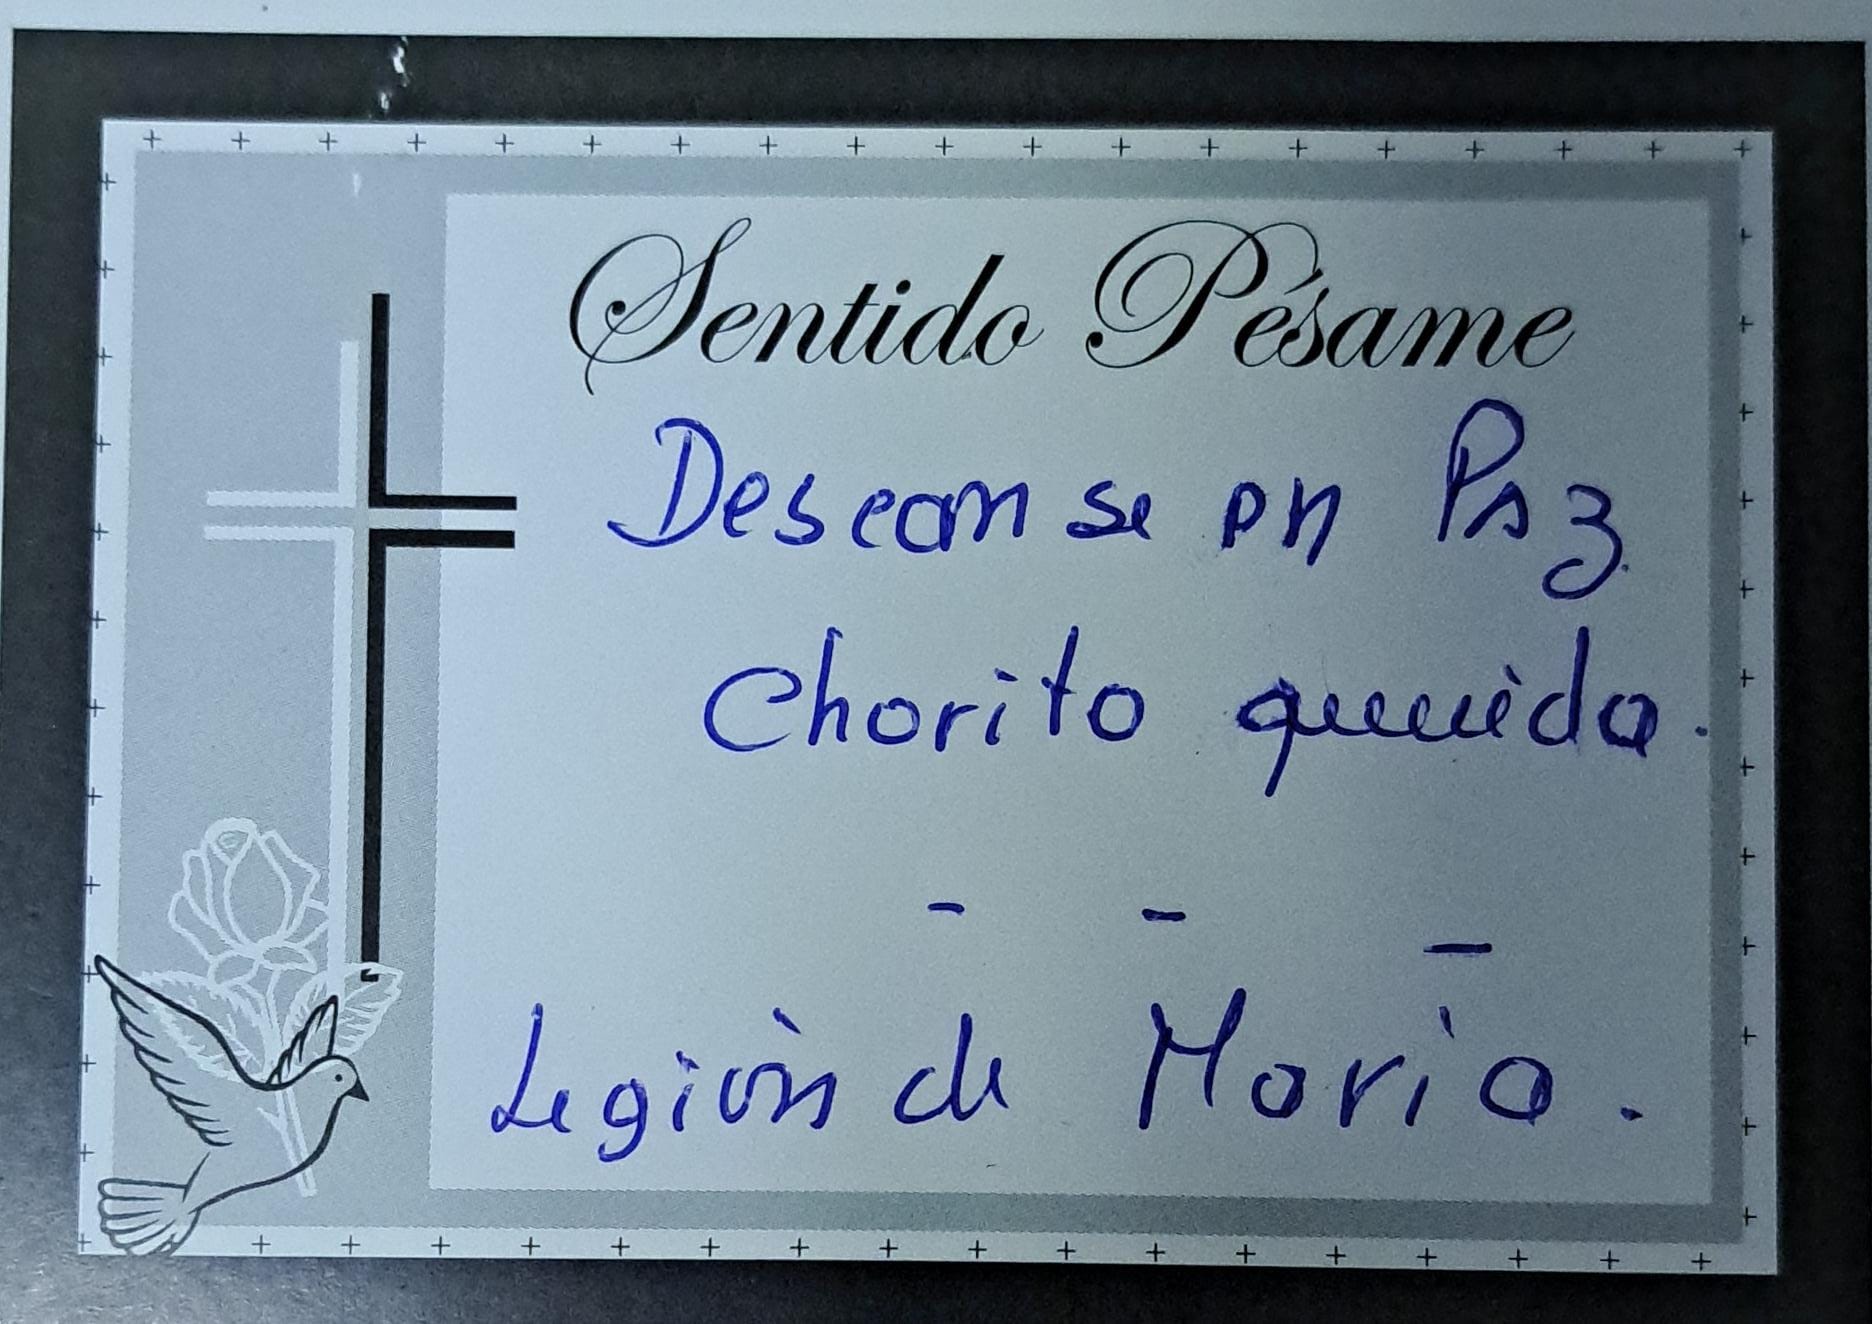 Sentido Pésame
Descanse en Paz
Chorito querida.
Legión de Maria.